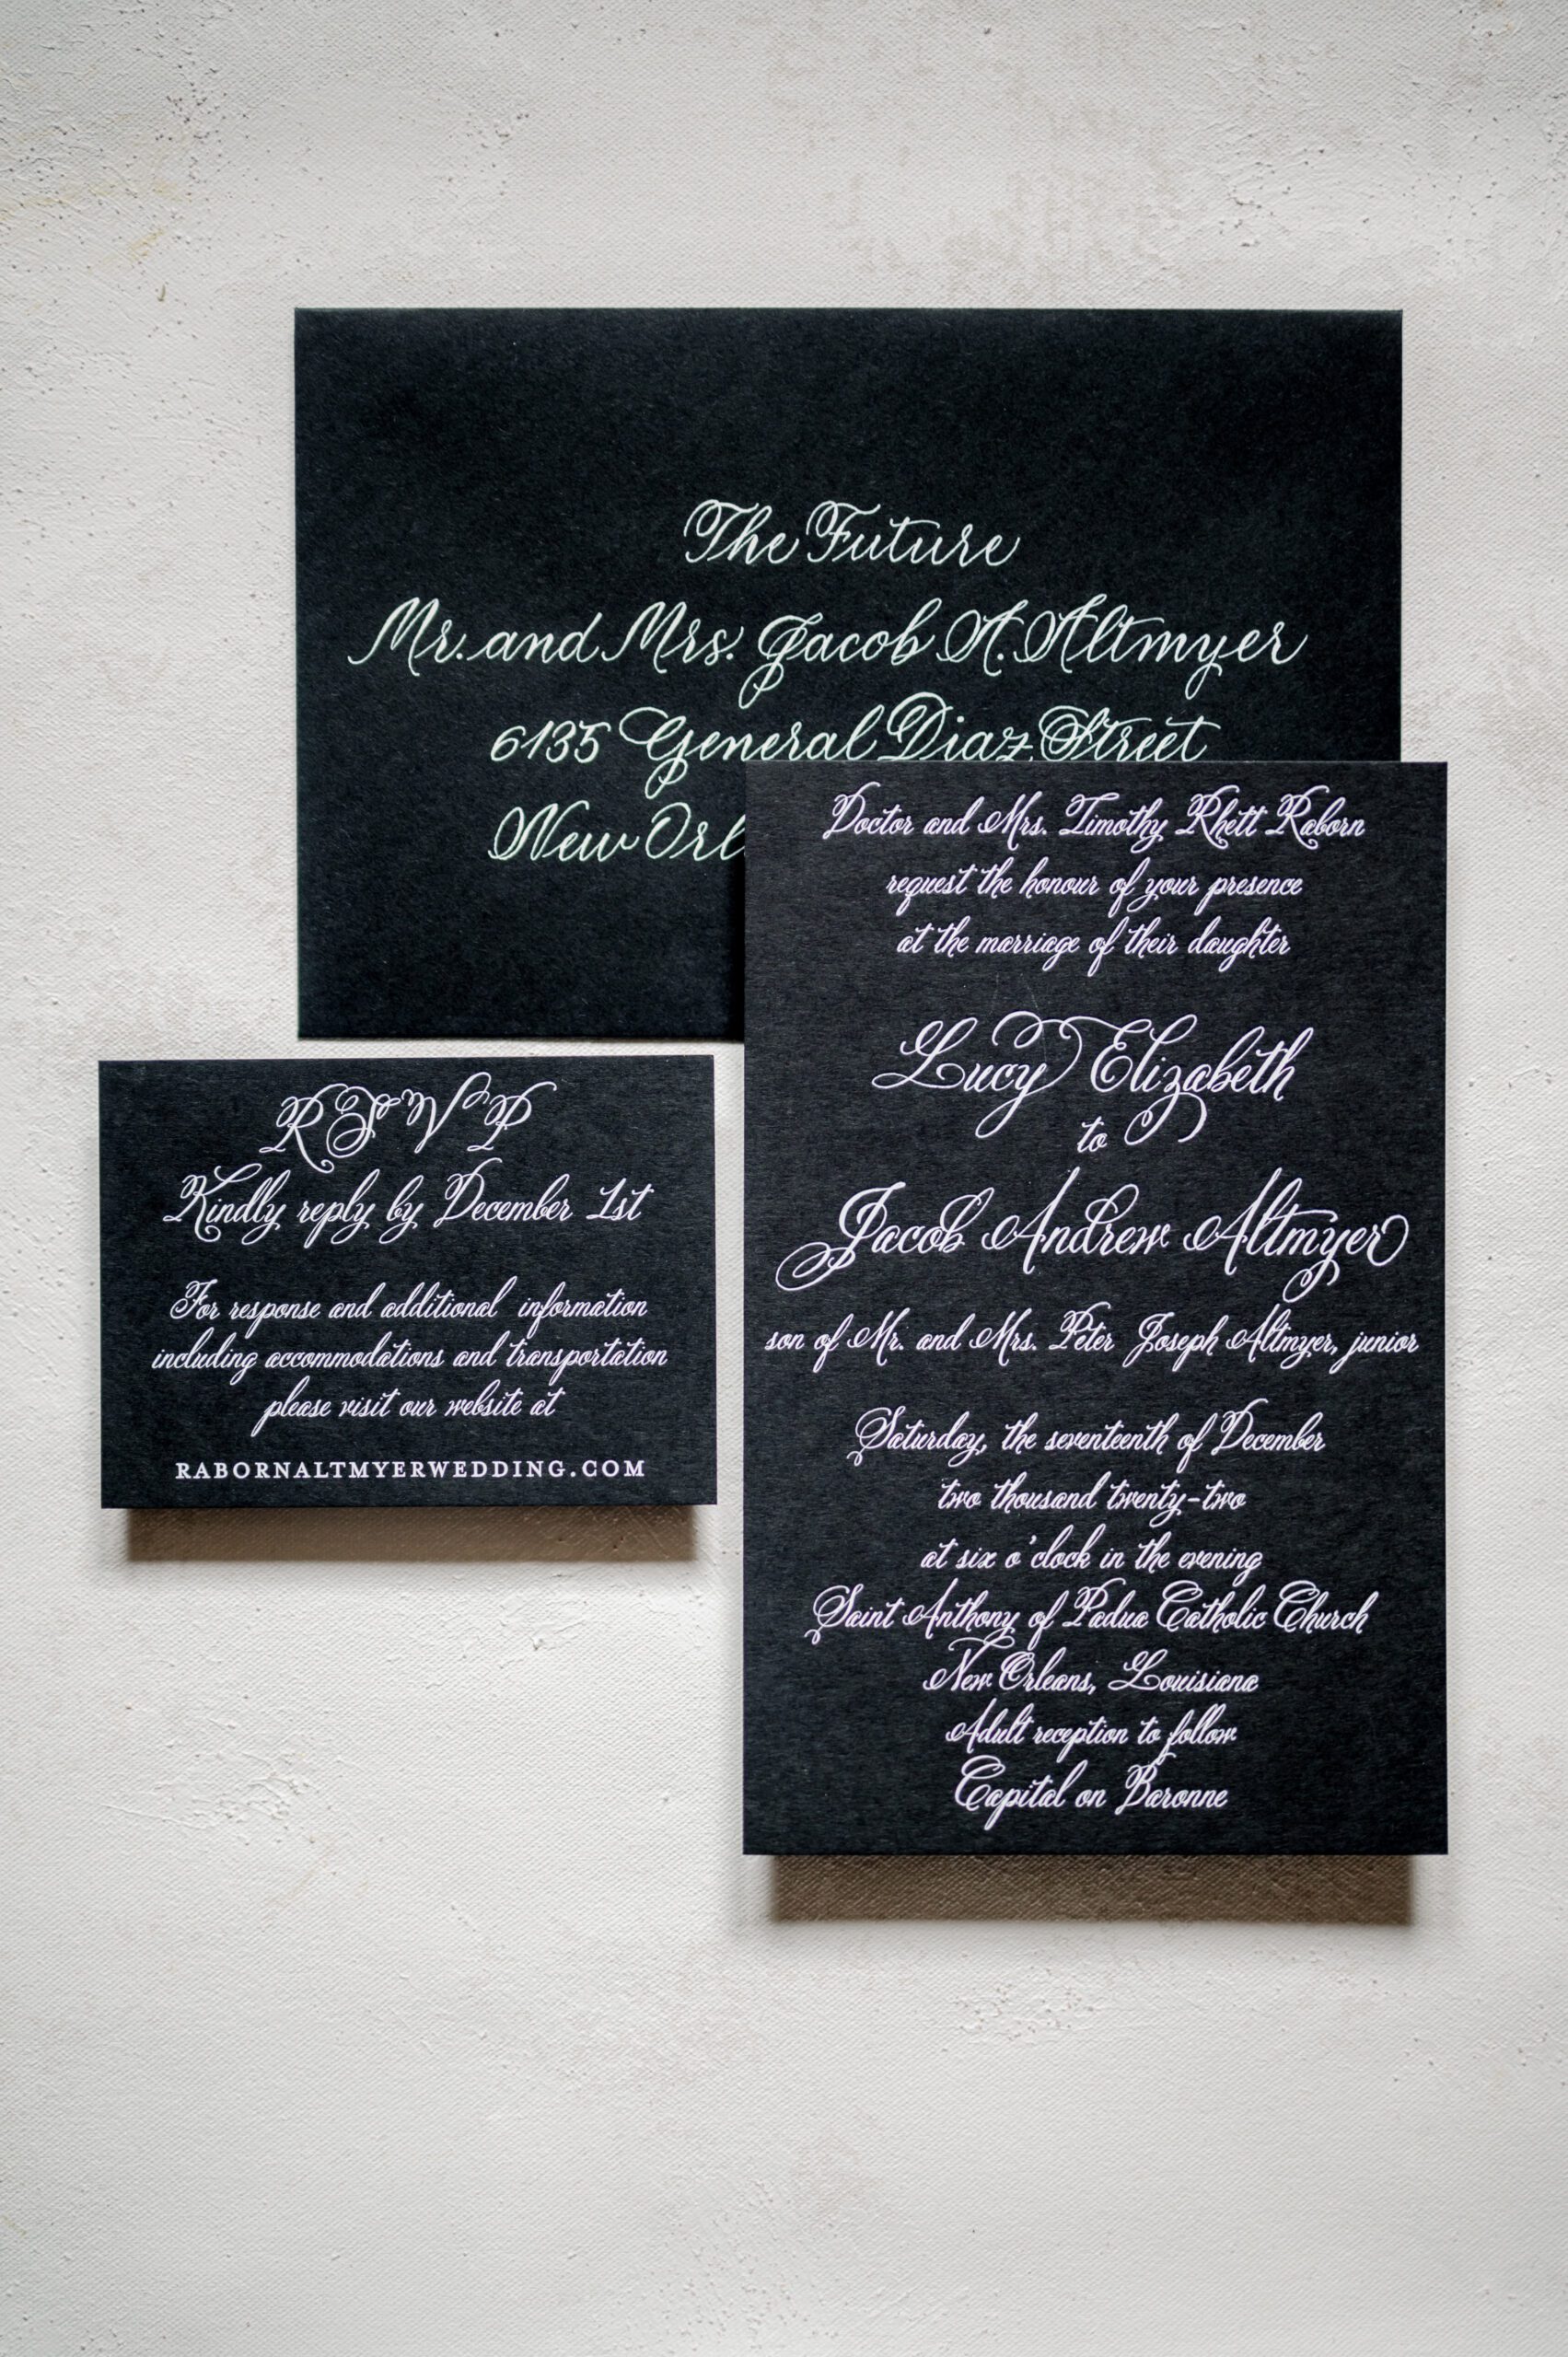 The Future
Mr. and Mrs. Jacob A. Altmyer
6135 General Diaz Street
New Orl
Doctor and Mrs. Timothy Rhett Raborn
request the honour of your presence
at the marriage of their daughter
Lucy Elizabeth
to
Jacob Andrew Altmyer
son of Mr. and Mrs. Peter Joseph Altmyer, junior
Saturday, the seventeenth of December
two thousand twenty-two
at six o'clock in the evening
Saint Anthony of Padua Catholic Church
New Orleans, Louisiana
Adult reception to follow
Capital on Baronne
RSVP
Kindly reply by December 1st
For response and additional information
including accommodations and transportation
please visit our website at
RABORNALTMYERWEDDING.COM